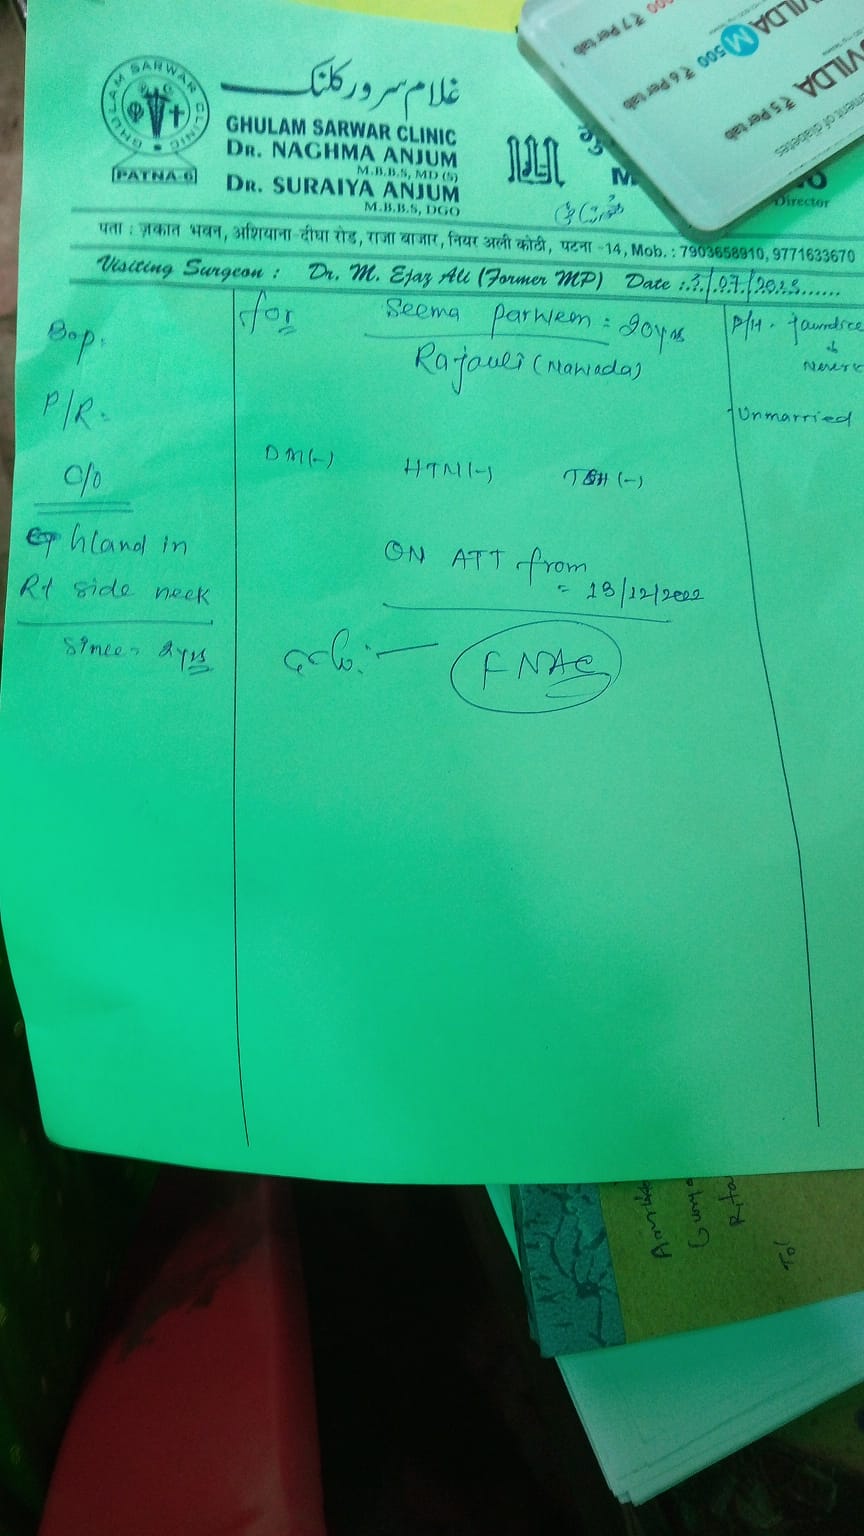 غلام سرور کلنک
GHULAM SARWAR CLINIC
DR. NAGHMA ANJUM
M.B.B.S, MD (S)
DR. SURAIYA ANJUM
M.B.B.S, DGO
GHULAM SARWAR CLINIC
PATNA-6
Director
पता : ज़कात भवन, अशियाना दीघा रोड, राजा बाजार, नियर अली कोठी, पटना -14, Mob. : 7903658910, 9771633670
Visiting Surgeon : Dr. M. Ejaz Ali (Former MP) Date :
for Seema Parween = 20yrs
Rajauli (Nawada)
P/H. Jaundice
Unmarried
Bop:
P/R:
C/o
gland in
Rt side neck
Since = 2yrs
DM(-) HTN(-) TSH (-)
ON ATT from
= 13/12/2022
FNAC
VILDA M 500 ₹ 6 Per tab
VILDA ₹ 5 Per tab
₹ 7 Per tab
of diabetes